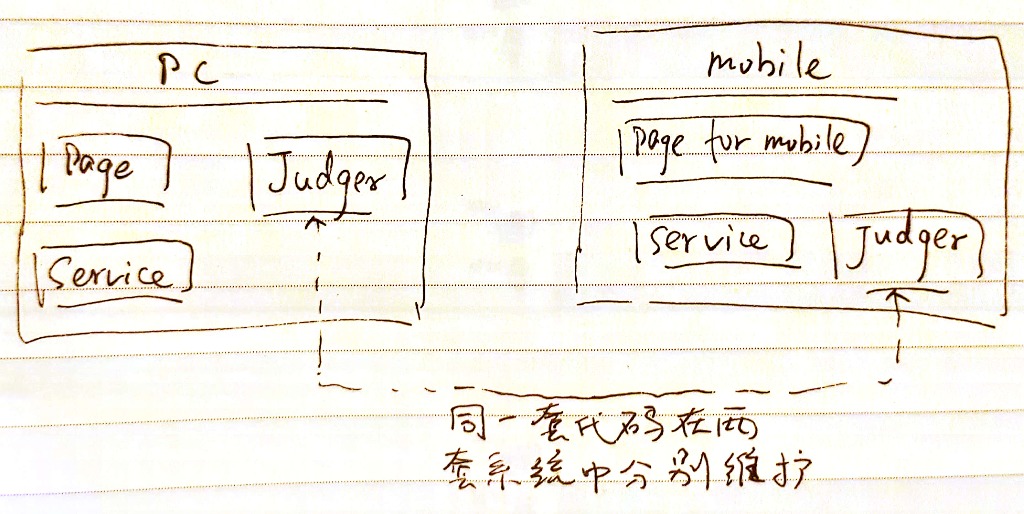 PC
Page
Judger
Service
mobile
page for mobile
service
Judger
同一套代码在两
套系统中分别维护